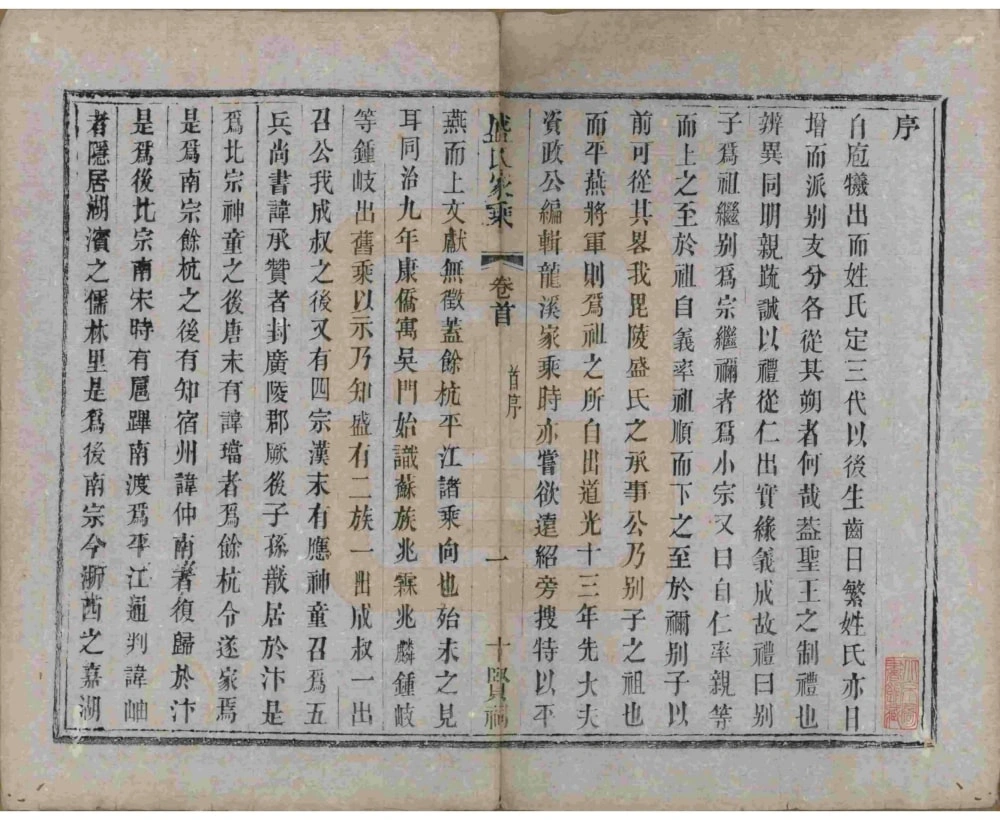 序
自庖犧出而姓氏定三代以後生齒日繁姓氏亦日
增而派別支分各從其朔者何哉葢聖王之制禮也
辨異同明親疏誠以禮從仁出實緣義成故禮曰別
子爲祖繼別爲宗繼禰者爲小宗又曰自仁率親等
而上之至於祖自義率祖順而下之至於禰別子以
前可從其畧我毘陵盛氏之承事公乃別子之祖也
而平燕將軍則爲祖之所自出道光十三年先大夫
資政公編輯龍溪家乘時亦嘗欲遠紹旁搜特以平
盛氏家乘
卷首
首序
一
十賢祠
燕而上文獻無徵蓋餘杭平江諸乘向也始未之見
耳同治九年康僑寓吳門始識蘇族兆霖兆麟鍾岐
等鍾岐出舊乘以示乃知盛有二族一出成叔一出
召公我成叔之後又有四宗漢末有應神童召爲五
兵尚書諱承贊者封廣陵郡厥後子孫散居於汴是
爲北宗神童之後唐末有諱璫者爲餘杭令遂家焉
是爲南宗餘杭之後有知宿州諱仲南者復歸於汴
是爲後北宗南宋時有扈蹕南渡爲平江通判諱岫
者隱居湖濱之儒林里是爲後南宗今浙西之嘉湖